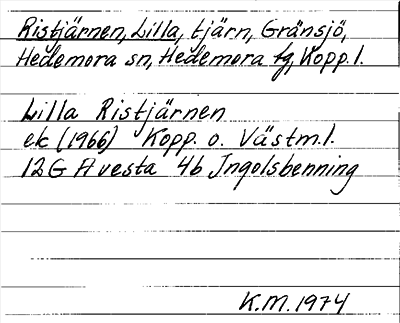 Ristjärnen, Lilla, tjärn, Gränsjö,
Hedemora sn, Hedemora tg, Kopp. l.
Lilla Ristjärnen
ek (1966) Kopp. o. Västm.l.
12G Avesta 4b Ingolsbenning
K.M. 1974